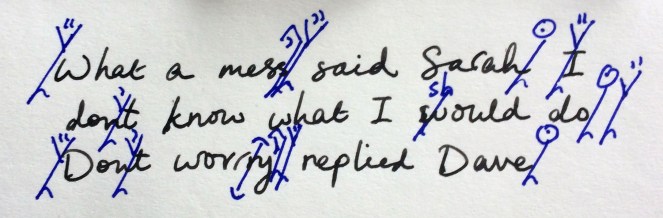 What a mess said Sarah I
sh
dont know what I would do
Dont worry replied Dave